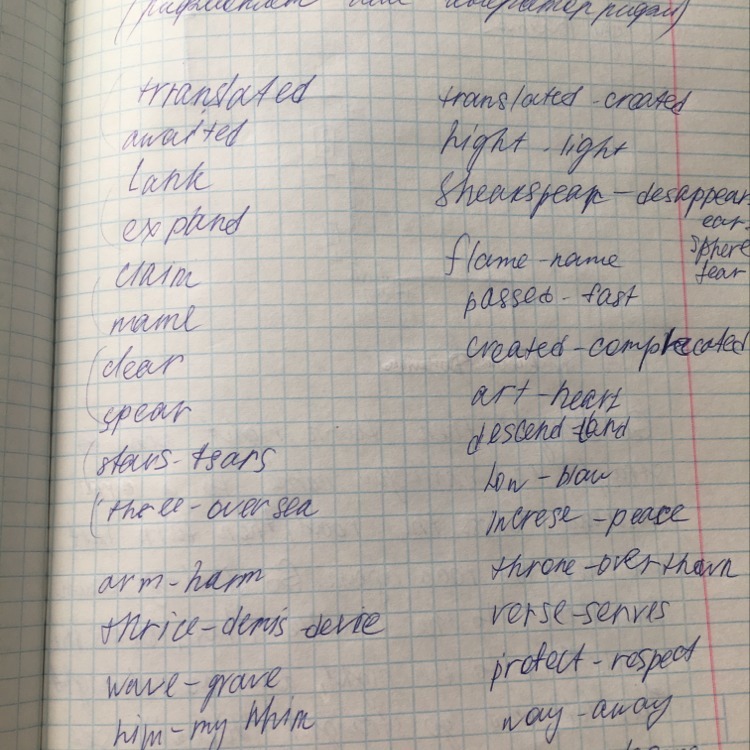 translated
awaited
Lank
expland
claim
mame
clear
spear
stars-tsars
three-over sea
arm-harm
thrice-demis device
wave-grave
him-my whim
translated-created
hight-light
Sheakspear-desappear
ear
sphere
fear
flame-name
passed-fast
created-complecated
art-heart
descend-land
low-blow
increse-peace
throne-over thown
verse-serves
protect-respect
way-away